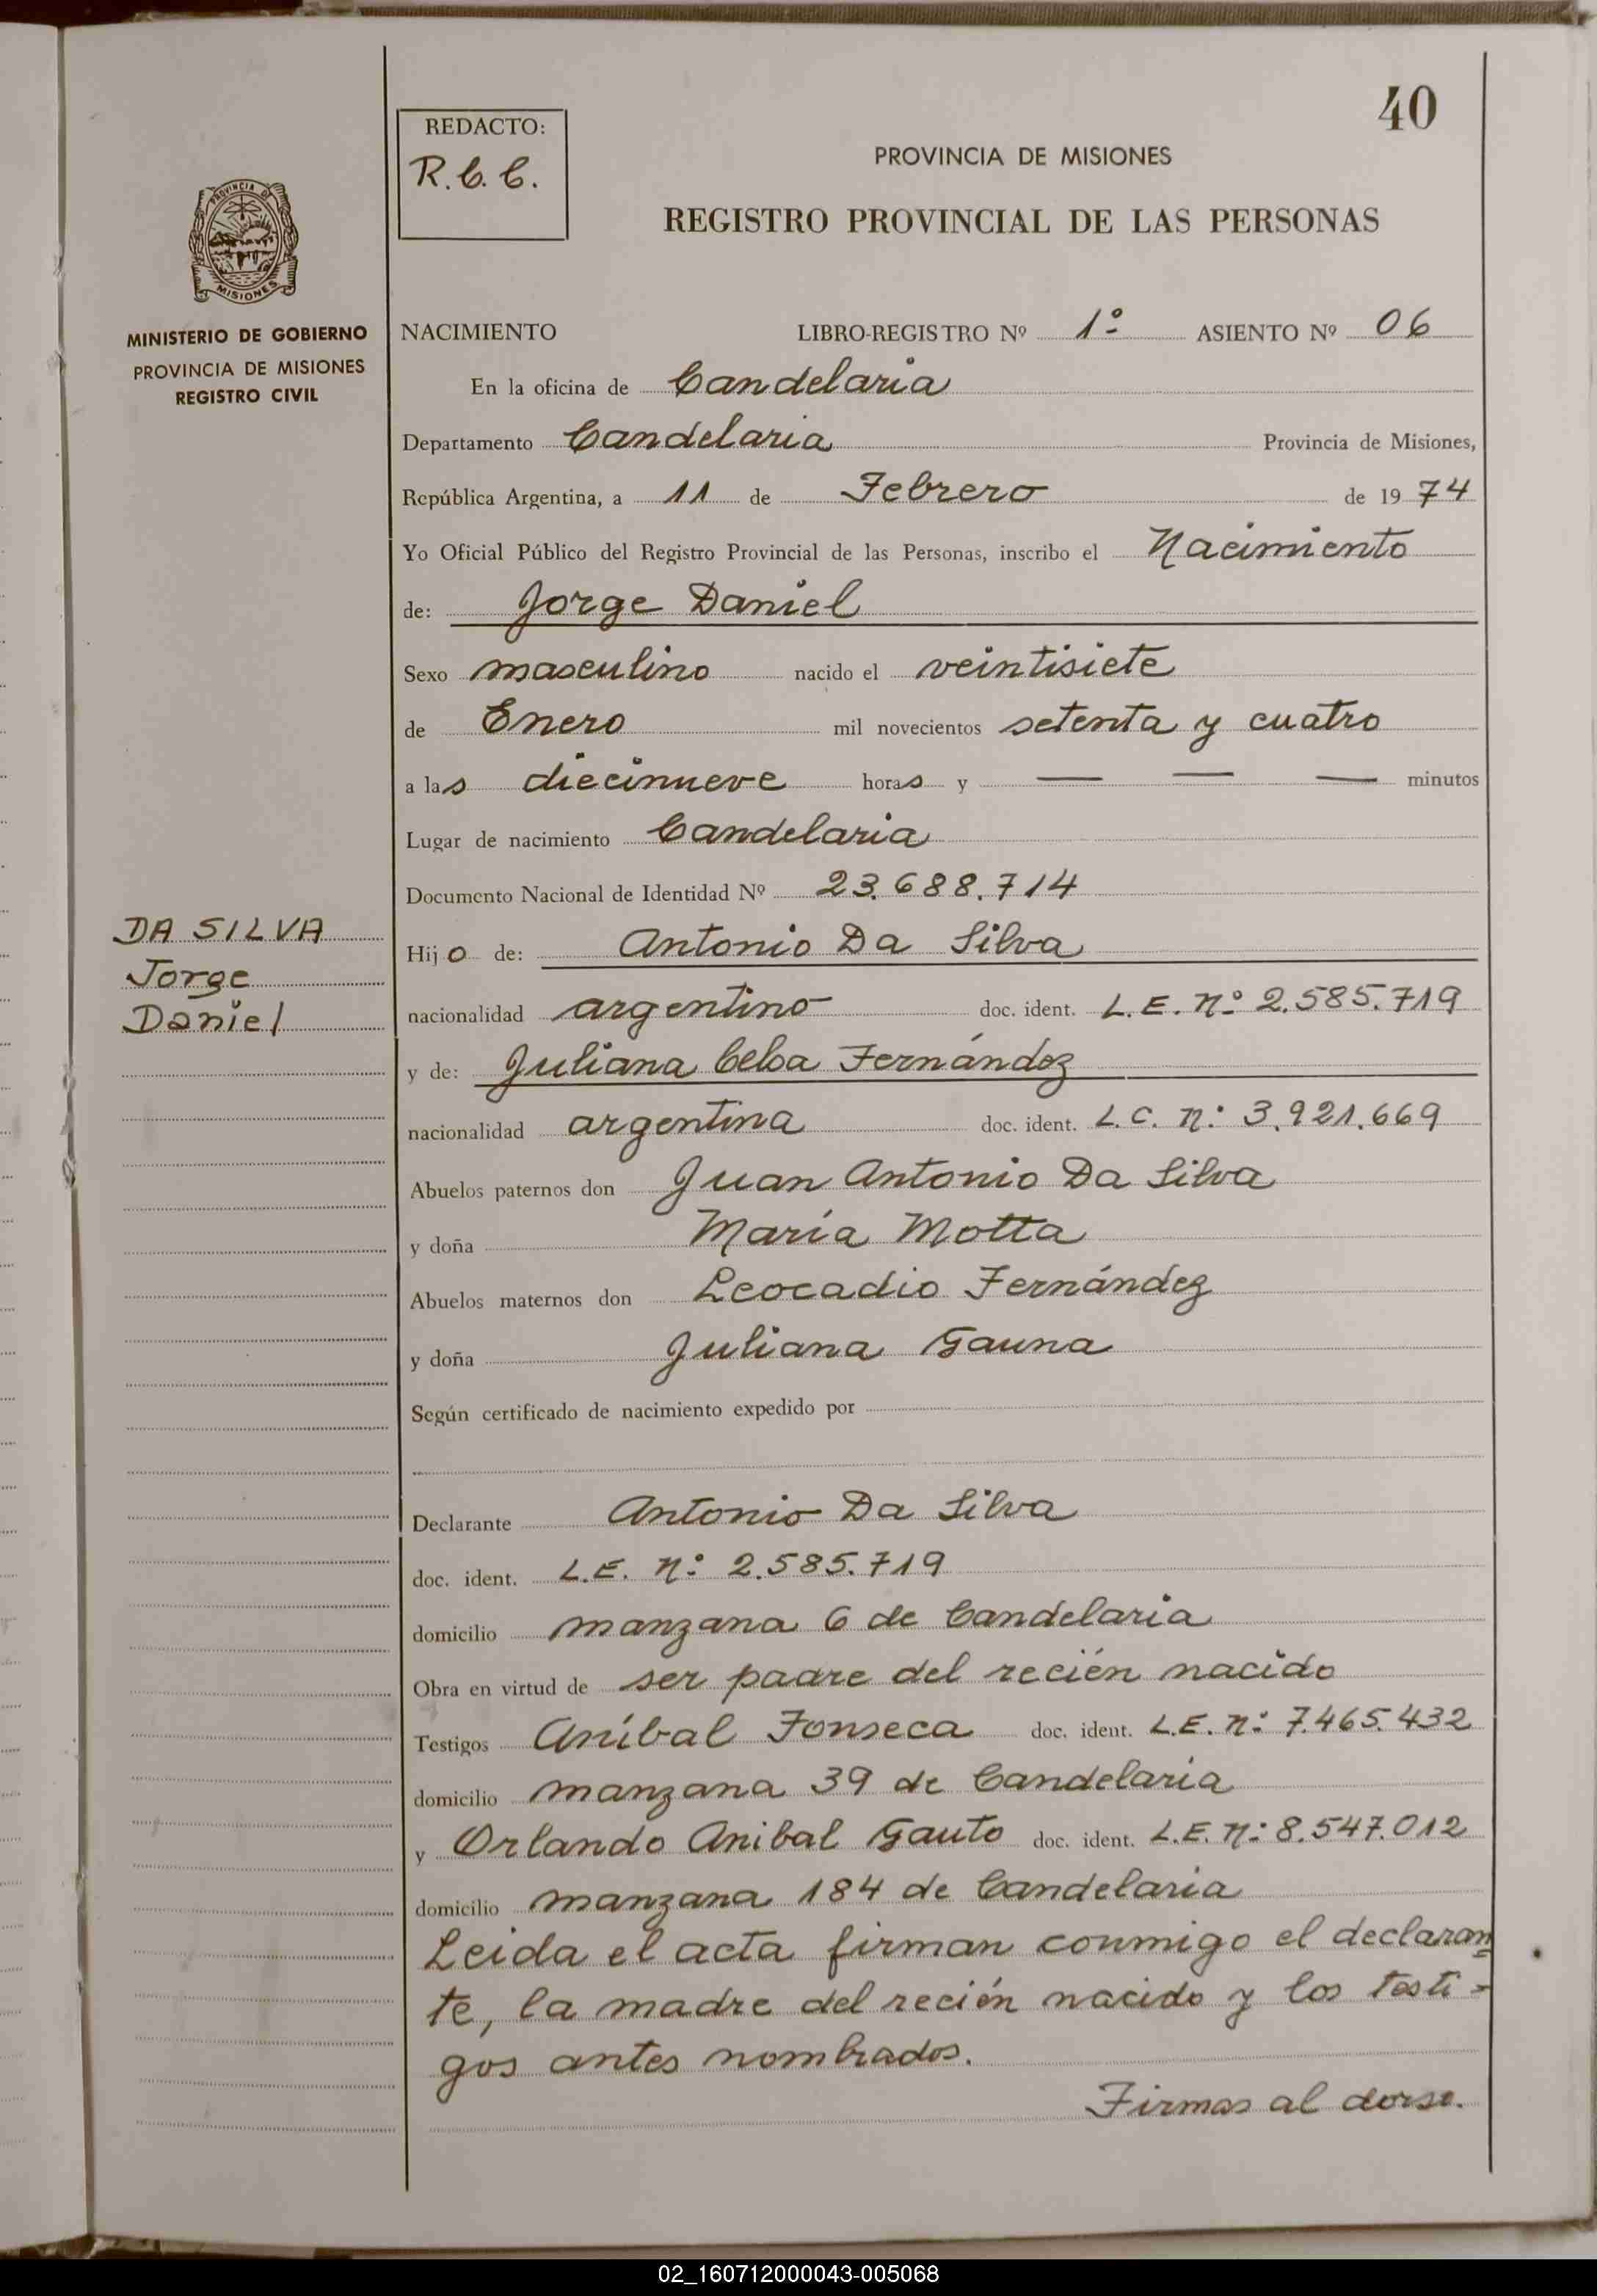 40
REDACTO:
R.C.C.
PROVINCIA DE MISIONES
REGISTRO PROVINCIAL DE LAS PERSONAS
PROVINCIA DE
MISIONES
MINISTERIO DE GOBIERNO
PROVINCIA DE MISIONES
REGISTRO CIVIL
NACIMIENTO LIBRO-REGISTRO Nº 1º ASIENTO Nº 06
En la oficina de Candelaria
Departamento Candelaria Provincia de Misiones,
República Argentina, a 11 de Febrero de 19 74
Yo Oficial Público del Registro Provincial de las Personas, inscribo el Nacimiento
de: Jorge Daniel
Sexo masculino nacido el veintisiete
de Enero mil novecientos setenta y cuatro
a las diecinueve horas y — — — minutos
Lugar de nacimiento Candelaria
Documento Nacional de Identidad Nº 23.688.714
DA SILVA
Jorge
Daniel
Hijo de: Antonio Da Silva
nacionalidad argentino doc. ident. L.E. Nº 2.585.719
y de: Juliana Celsa Fernández
nacionalidad argentina doc. ident. L.C. Nº 3.921.669
Abuelos paternos don Juan Antonio Da Silva
y doña María Motta
Abuelos maternos don Leocadio Fernández
y doña Juliana Gauna
Según certificado de nacimiento expedido por
Declarante Antonio Da Silva
doc. ident. L.E. Nº 2.585.719
domicilio manzana 6 de Candelaria
Obra en virtud de ser padre del recién nacido
Testigos Aníbal Fonseca doc. ident. L.E. Nº 7.465.432
domicilio manzana 39 de Candelaria
y Orlando Anibal Gauto doc. ident. L.E. Nº 8.547.012
domicilio manzana 184 de Candelaria
Leida el acta firman conmigo el declaran=
te, la madre del recién nacido y los testi=
gos antes nombrados.
Firmas al dorso.
02_160712000043-005068